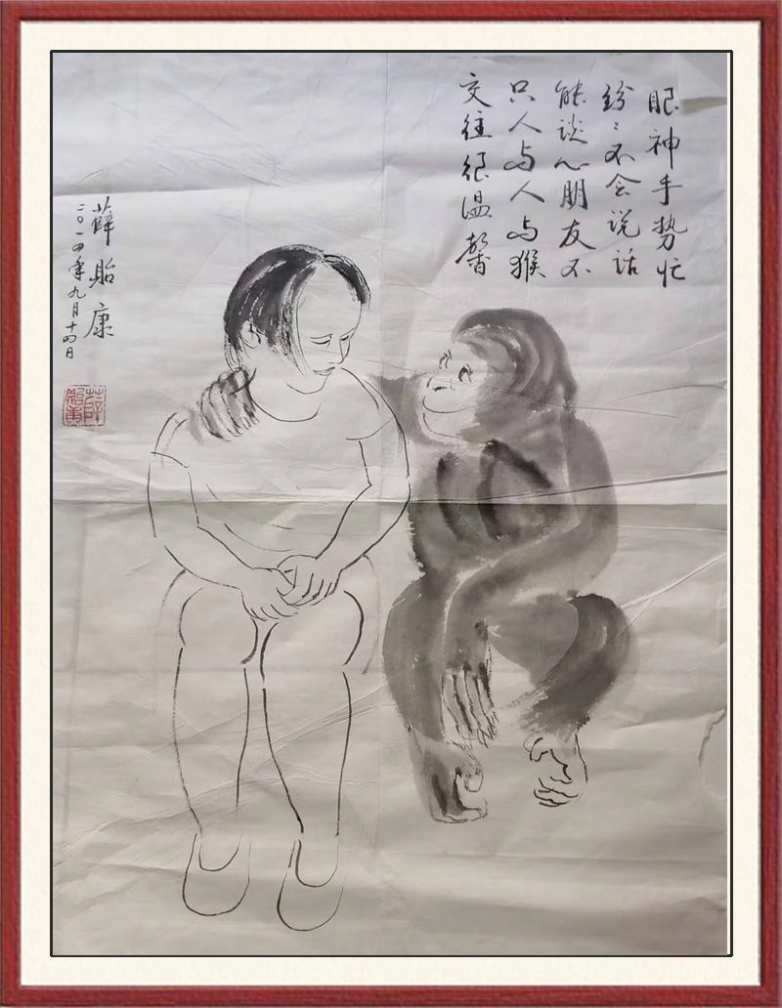 眼神手势忙
纷〻不会说话
能谈心朋友不
只人与人与猴
交往很温馨
薛贻康
二〇一四年九月十四日